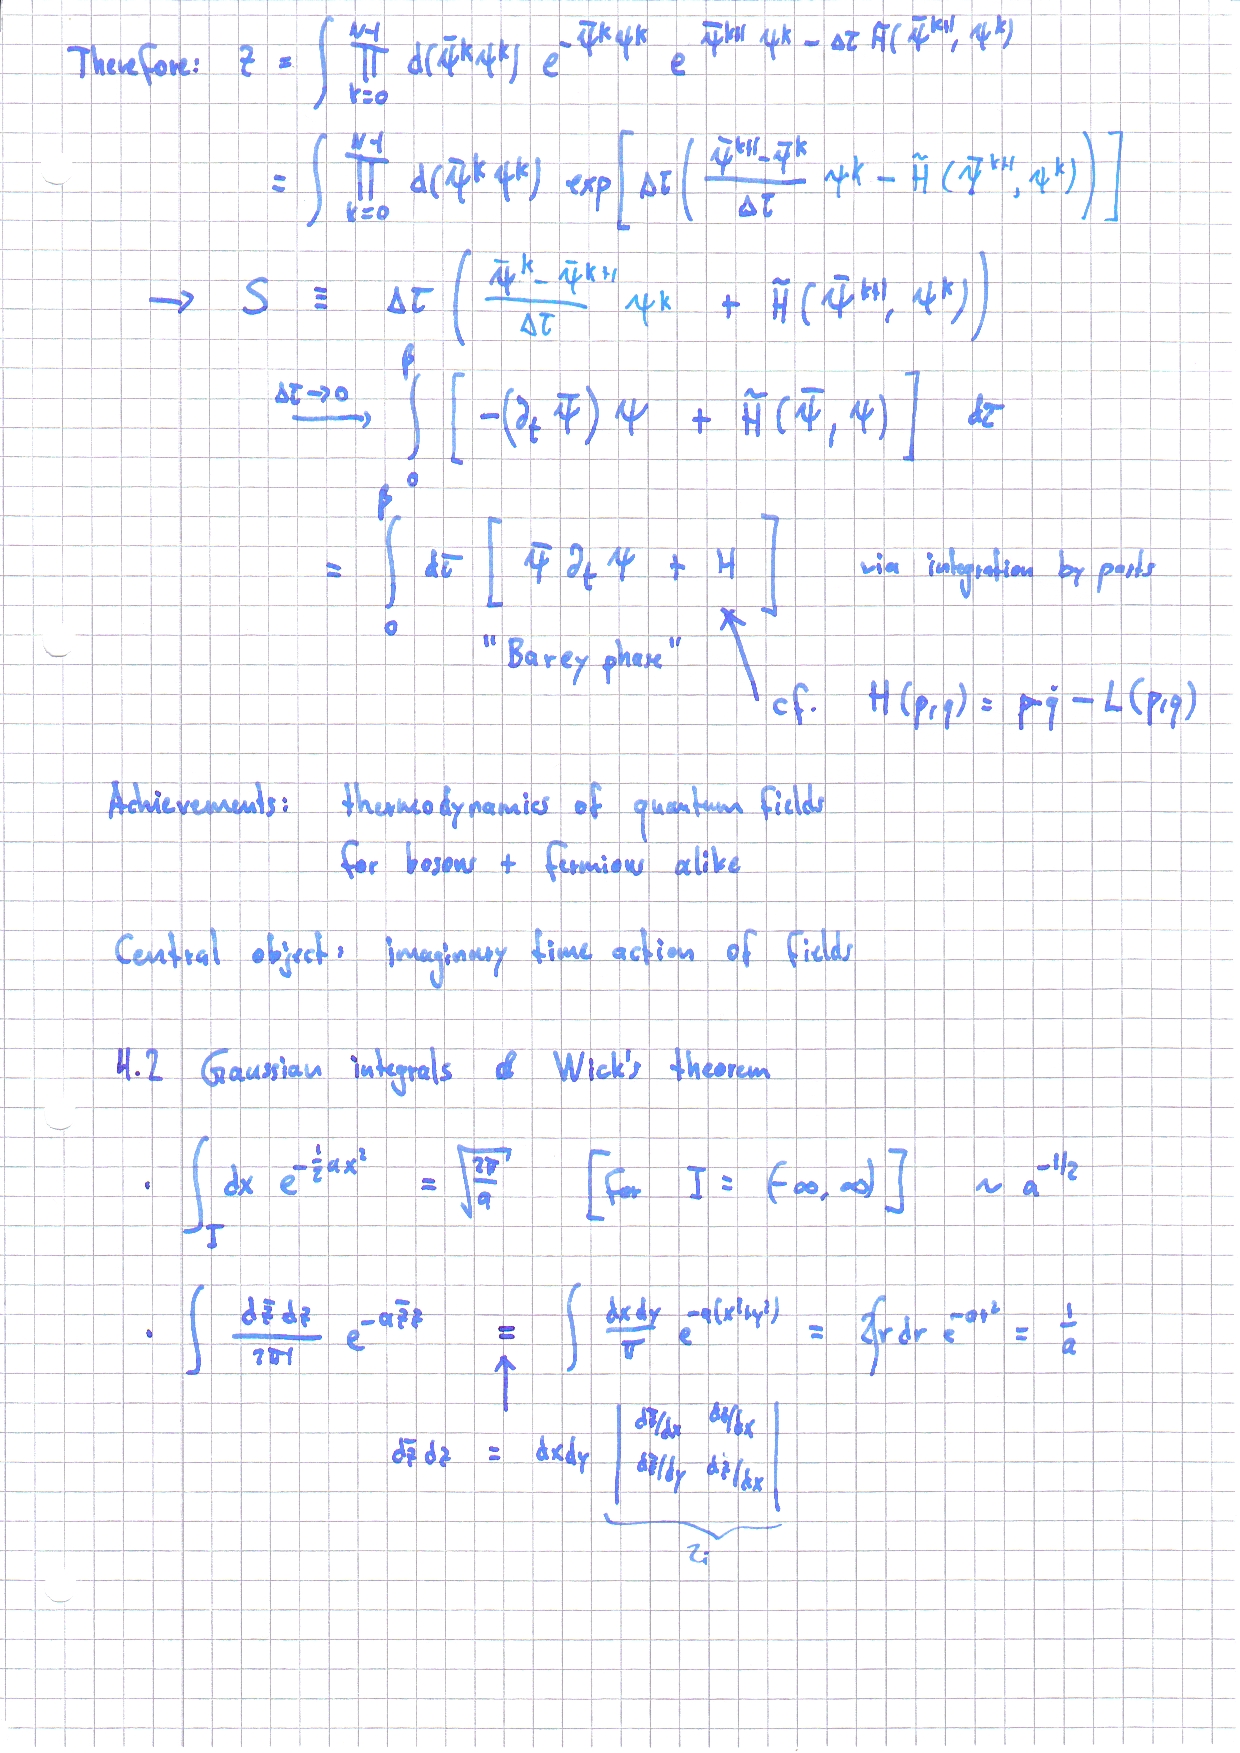 Therefore: Z = ∫ ∏_{k=0}^{N-1} d(ψ̄^k ψ^k) e^{-ψ̄^k ψ^k} e^{ψ̄^{k+1} ψ^k - Δτ H̃(ψ̄^{k+1}, ψ^k)}
= ∫ ∏_{k=0}^{N-1} d(ψ̄^k ψ^k) exp[ Δτ ( (ψ̄^{k+1} - ψ̄^k)/Δτ ψ^k - H̃(ψ̄^{k+1}, ψ^k) ) ]
→ S ≡ Δτ ( (ψ̄^k - ψ̄^{k+1})/Δτ ψ^k + H̃(ψ̄^{k+1}, ψ^k) )
Δτ→0 → ∫_0^β [ -(∂_t ψ̄) ψ + H̃(ψ̄, ψ) ] dτ
= ∫_0^β dτ [ ψ̄ ∂_t ψ + H ] via integration by parts
"Barey phase"
cf. H(p,q) = p·q̇ - L(p,q)
Achievements: thermodynamics of quantum fields
for bosons + fermions alike
Central object: imaginary time action of fields
4.2 Gaussian integrals & Wick's theorem
· ∫_I dx e^{-½ax²} = √(2π/a) [for I = (-∞, ∞)] ~ a^{-1/2}
· ∫ dz̄ dz/2πi e^{-az̄z} = ∫ dxdy/π e^{-a(x²+y²)} = 2∫r dr e^{-ar²} = 1/a
↑
dz̄ dz = dxdy | dz̄/dx dz/dx |
| dz̄/dy dz/dx |
2i